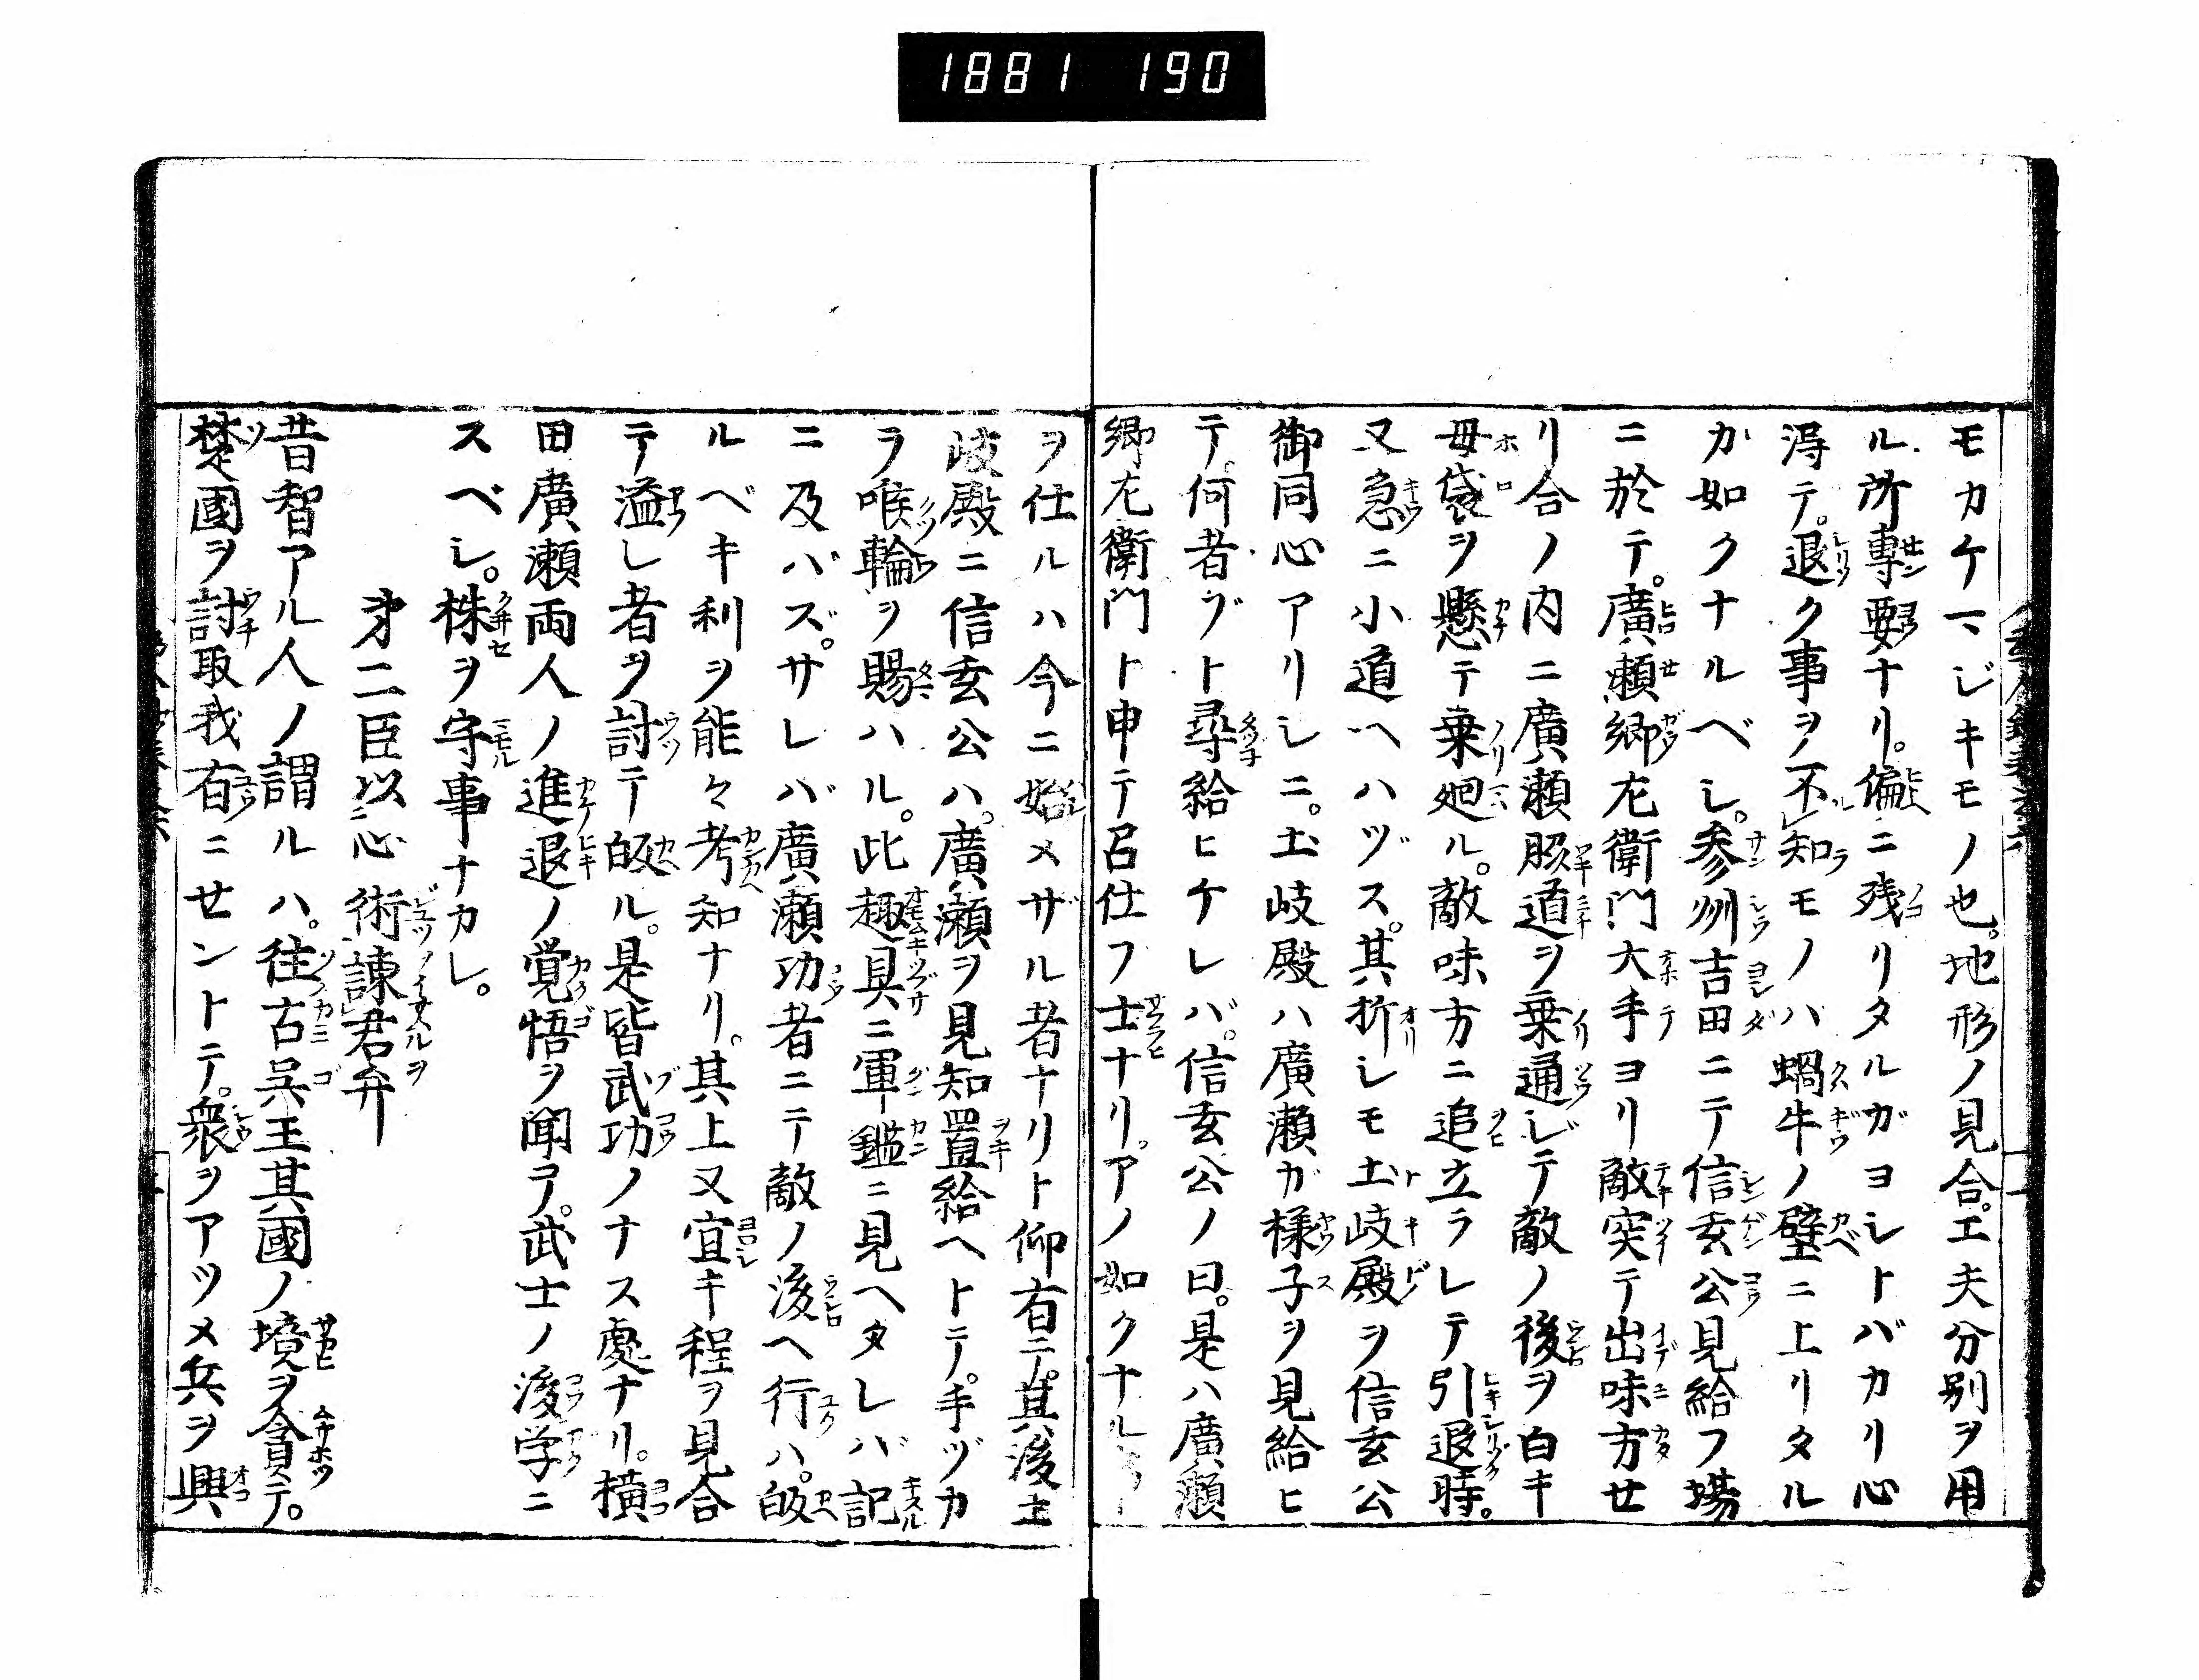 1881 190
モカケマジキモノ也。地形ノ見合。工夫分別ヲ用
ル所専要ナリ。偏ニ残リタルガヨシトバカリ心
得テ。退ク事ヲ不知モノハ蝸牛ノ壁ニ上リタル
カ如クナルベシ。参州吉田ニテ信玄公見給フ場
ニ於テ。廣瀬郷左衛門大手ヨリ敵突テ出味方せ
リ合ノ内ニ廣瀬脇道ヲ乗通ジテ敵ノ後ヲ白キ
母袋ヲ懸テ乗廻ル。敵味方ニ追立ラレテ引退時。
又急ニ小道ヘハヅス。其折シモ土岐殿ヲ信玄公
御同心アリシニ。土岐殿ハ廣瀬ガ様子ヲ見給ヒ
テ。何者ゾト尋給ヒケレバ。信玄公ノ曰。是ハ廣瀬
郷左衛門ト申テ召仕フ士ナリ。アノ如クナル
ヲ仕ルハ今ニ始メザル者ナリト仰有テ。其後土
岐殿ニ信玄公ハ。廣瀬ヲ見知置給ヘトテ。手ヅカ
ラ喉輪ヲ賜ハル。此趣具ニ軍鑑ニ見ヘタレバ記
ニ及バズ。サレバ廣瀬功者ニテ敵ノ後ヘ行ハ。皈
ルベキ利ヲ能々考知ナリ。其上又宜キ程ヲ見合
テ溢レ者ヲ討テ皈ル。是皆武功ノナス處ナリ。横
田廣瀬両人ノ進退ノ覚悟ヲ聞テ。武士ノ後学ニ
スベシ。株ヲ守事ナカレ。
第二臣以心術諫君弁
昔智アル人ノ謂ルハ。往古呉王其國ノ境ヲ貪テ。
楚國ヲ討取我有ニセントテ。衆ヲアツメ兵ヲ興